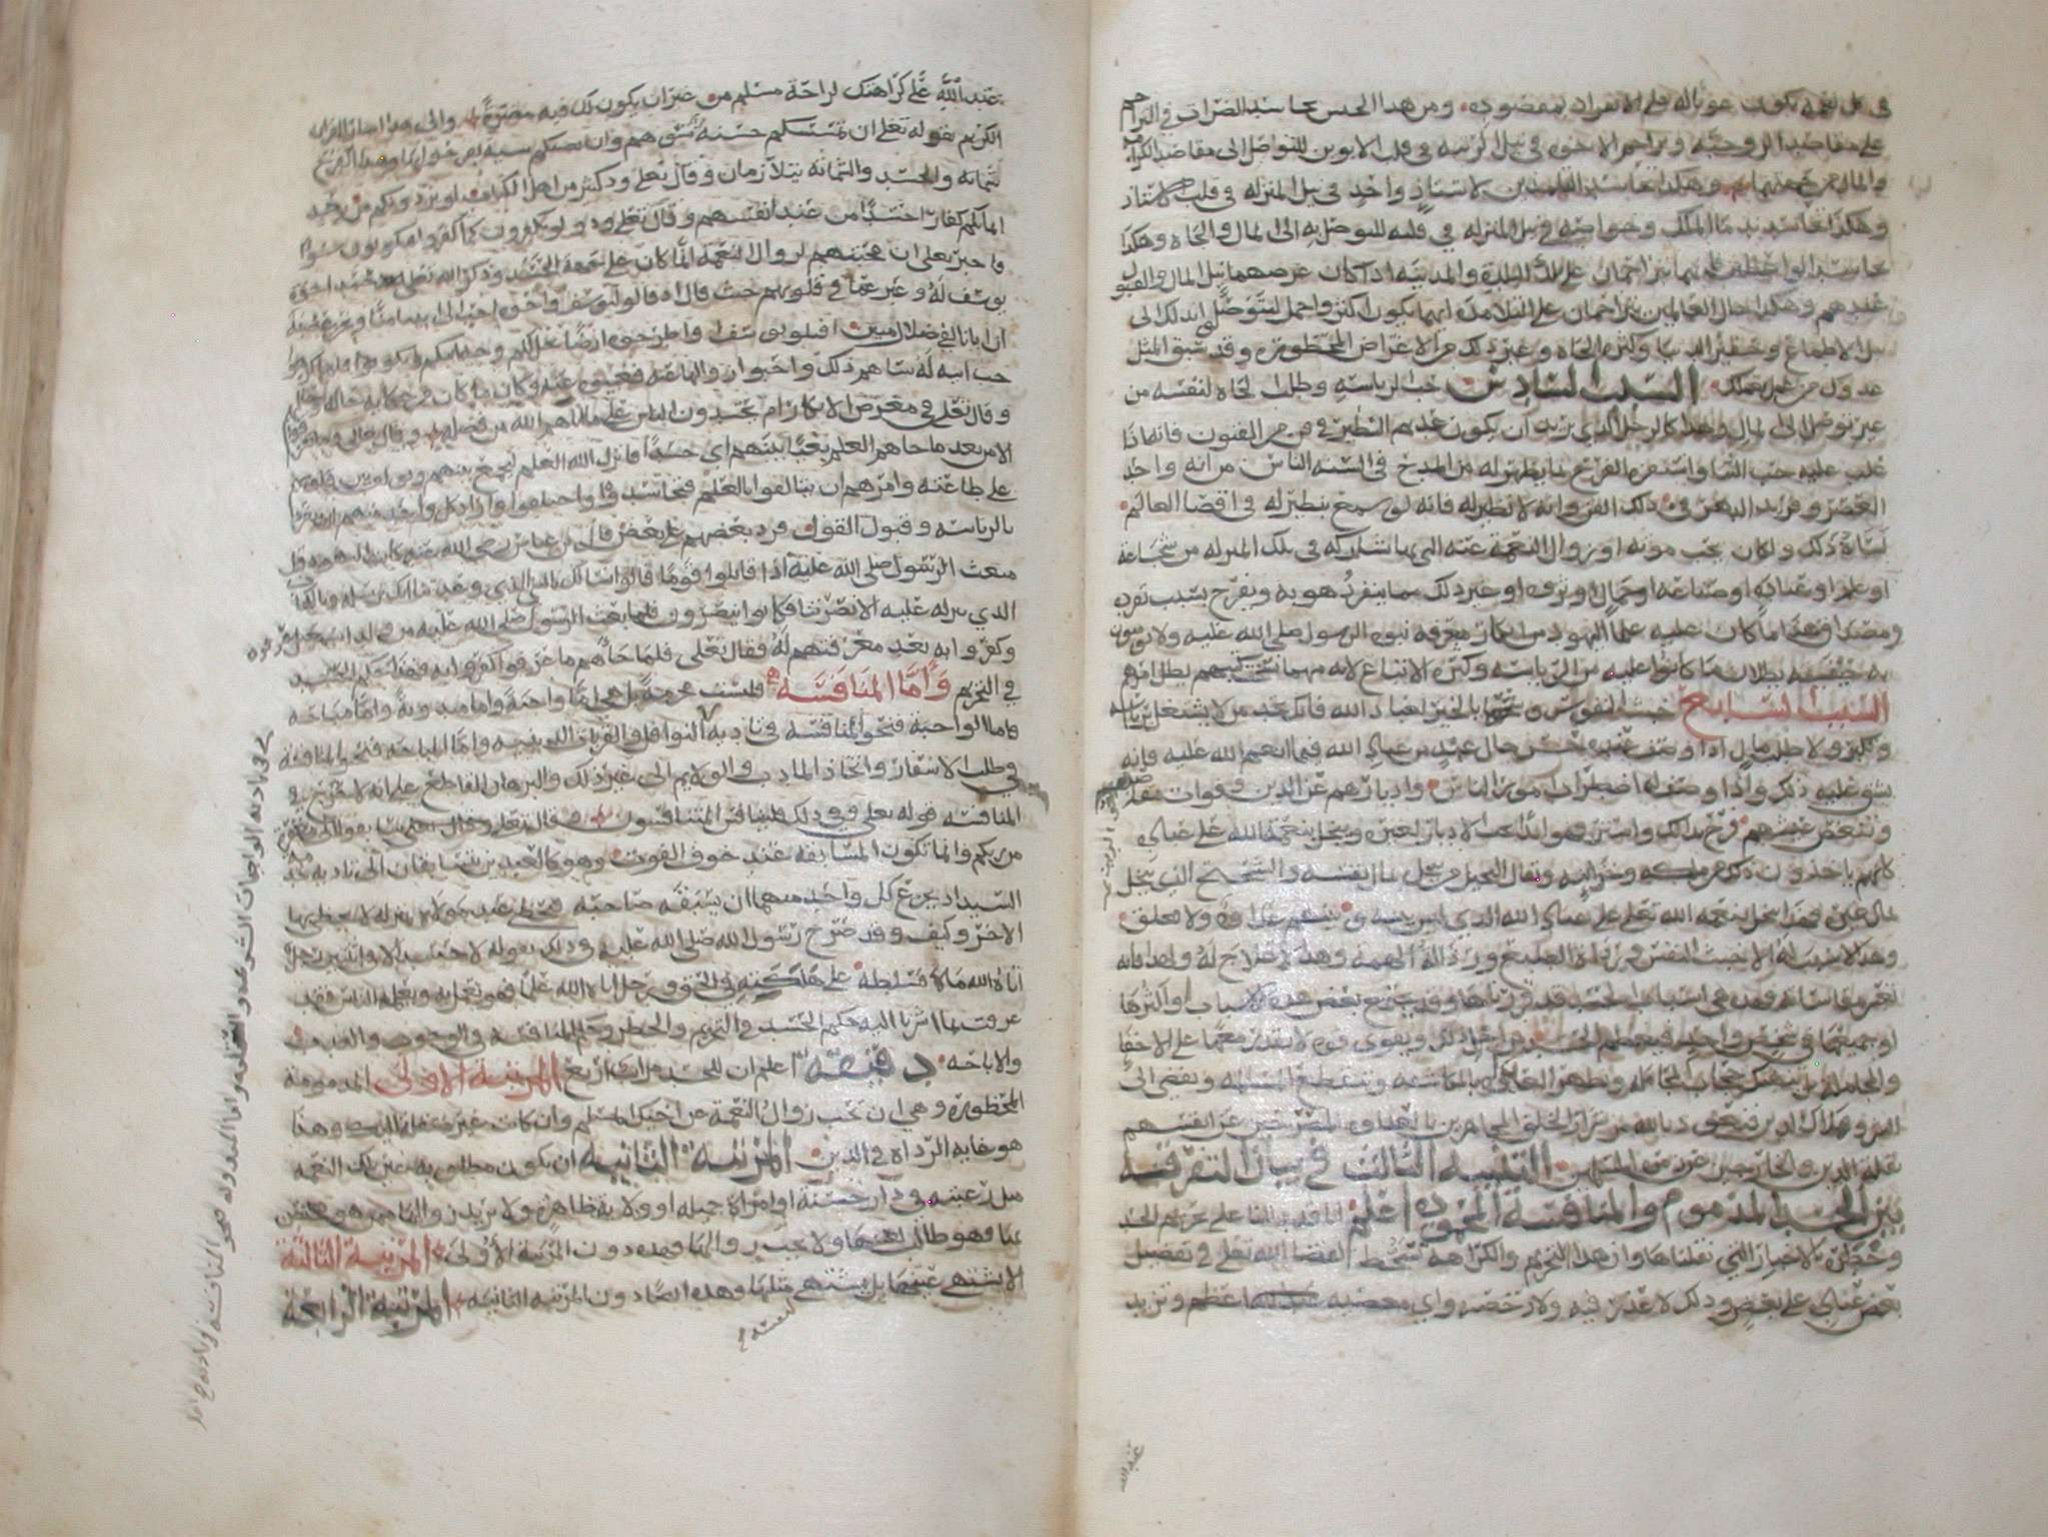 في كل نعمة تكون عونا له على الانفراد بمقصوده ومن هذا الجنس تحاسد الضرات في التزاحم
على مقاصد الزوجية وتزاحم الاخوة في نيل المنزلة في قلب الابوين للتوصل الى مقاصد الكرامة
والمال من جهتهما وهكذا تحاسد التلميذين لاستاذ واحد في نيل المنزلة في قلب الاستاذ
وهكذا تحاسد ندماء الملك وخواصه في نيل المنزلة في قلبه للتوصل به الى المال والجاه وهكذا
تحاسد الواعظين يتزاحمان على تلك البلدة والمدينة اذا كان غرضهما نيل المال والقبول
عندهم وهكذا حال العالمين يتزاحمان على التلامذة ايهما يكون اكثر واجمل ليتوصل بذلك الى
نيل الاطماع وكثرة الجاه وغير ذلك من الاغراض المحظورة وقد سبق المثل
السبب السادس حب الرياسة وطلب الجاه لنفسه من
غير توصل الى مال وهذا كالرجل الذي يريد ان يكون عديم النظير في فن من الفنون فانه اذا
غلب عليه حب الثنا واستفزه الفرح بما يظهر له من المدح في السنة الناس من انه واحد
العصر وفريد الدهر في ذلك الفن وانه لا نظير له فانه لو سمع بنظير له في اقصا العالم
لساه ذلك ولكان يحب موته او زوال النعمة عنه التي بها تشاركه في تلك المنزلة من شجاعة
او علم او عبادة او صناعة او جمال او ثروة او غير ذلك مما ينفرد هو به ويفرح بسبب تفرده
ومصداق هذا ما كان عليه علما اليهود من انكار معرفة نبوة الرسول صلى الله عليه ولا يؤمنون
به خيفة بطلان ما كانوا عليه من الرياسة وكثرة الاتباع لانه مهما نسخ كتبهم بطل امرهم
السبب السابع خبث النفوس وشحها بالخير لعباد الله فانك تجد من لا يشتغل برياسة
وتكبر ولا طلب مال اذا وصف عنده حسن حال عبد من عباد الله فيما انعم الله عليه فانه
يشق عليه ذلك واذا وصف له اضطراب امور الناس وادبارهم عن الدين وفوات مقاصدهم
وتنغص عيشهم فرح بذلك واستبشر فهو ابدا يحب الادبار لغيره ويبخل بنعمة الله على عباده
كانهم ياخذون ذلك من ملكه وخزانته ويقال البخيل من يبخل بمال نفسه والشحيح الذي يبخل
بمال غيره فهذا يبخل بنعمة الله تعالى على عباد الله الذي ليس بينه وبينهم عداوة ولا تعلق
وهذا لا سبب له الا خبث النفس ورداة الطبع ورذالة الهمة وهذا لا علاج له
فهذه هي اسباب الحسد قد ذكرناها وقد يجتمع بعض هذه الاسباب او اكثرها
او جميعها في شخص واحد فيعظم الحسد من اجل ذلك ويقوى قوة لا يقدر معها على الاخفا
والمجاملة بل ينهتك حجاب المجاملة وتظهر العداوة بالمكاشفة
التنبيه الثالث في بيان التفرقة
بين الحسد المذموم والمنافسة المحمودة اعلم انا قد دللنا على تحريم الحسد
وحظره بالاخبار التي نقلناها وان هذا التحريم والكراهة تسخط لقضا الله تعالى في تفضيل
بعض عباده على بعض وذلك لا عذر فيه ولا رخصة واي معصية اعظم وتزيد
عند الله على كراهتك لراحة مسلم من غير ان يكون لك فيه مضرة والى هذا اشار القران
الكريم بقوله تعالى ان تمسسكم حسنة تسؤهم وان تصبكم سيئة يفرحوا بها وهذا الفرح
شماتة والحسد والشماتة يتلازمان وقال تعالى ود كثير من اهل الكتاب لو يردونكم من بعد
ايمانكم كفارا حسدا من عند انفسهم وقال تعالى ودوا لو تكفرون كما كفروا فتكونون سواء
فاخبر تعالى ان محبتهم لزوال النعمة انما كان على جهة الحسد وذكر الله تعالى حسد اخوة
يوسف له وعبر عما في قلوبهم حيث قال اذ قالوا ليوسف واخوه احب الى ابينا منا ونحن عصبة
ان ابانا لفي ضلال مبين اقتلوا يوسف او اطرحوه ارضا يخل لكم وجه ابيكم
حب ابيه له ساهم ذلك واحبوا زوالها عنه فغيبوه عنه وكان ما كان من حكاية حاله
وقال تعالى في معرض الانكار ام يحسدون الناس على ما اتاهم الله من فضله وقال تعالى وما تفرقوا
الا من بعد ما جاهم العلم بغيا بينهم اي حسدا فانزل الله العلم ليجمع بينهم ويؤلف بين قلوبهم
على طاعته وامرهم ان يتالفوا بالعلم فتحاسدوا واختلفوا واراد كل واحد منهم ان ينفرد
بالرياسة وقبول القول فرد بعضهم على بعض قال ابن عباس رضي الله عنه كانت اليهود قبل
مبعث الرسول صلى الله عليه اذا قاتلوا قوما قالوا نسالك بالنبي الذي وعدتنا ان ترسله وبالكتاب
الذي تنزله عليه الا نصرتنا فكانوا ينصرون فلما بعث الرسول صلى الله عليه من ولد اسمعيل عرفوه
وكفروا به بعد معرفتهم له فقال تعالى فلما جاهم ما عرفوا كفروا به فهذا حكم الحسد
في التحريم واما المنافسة فليست محرمة بل هي اما واجبة واما مندوبة واما مباحة
فاما الواجبة فنحو المنافسة في تادية النوافل والقربات المندوبة واما المباحة فنحو المنافسة
في طلب الاسفار واتخاذ المادب والولايم الى غير ذلك والبرهان القاطع على انه لا تحريم في
المنافسة قوله تعالى وفي ذلك فليتنافس المتنافسون وقال تعالى سابقوا الى مغفرة
من ربكم وانما تكون المسابقة عند خوف الفوت وهو كالعبدين يتسابقان الى تادية خدمة
السيد اذ يجزع كل واحد منهما ان يسبقه صاحبه فيحظى عند مولاه بمنزلة لا يحظى بها
الاخر وكيف وقد صرح رسول الله صلى الله عليه وذلك بقوله لا حسد الا في اثنين رجل
اتاه الله مالا فسلطه على هلكته في الحق ورجل اتاه الله علما فهو يعمل به ويعلمه الناس فقد
عرفت بما اشرنا اليه حكم الحسد في التحريم والحظر وحكم المنافسة في الوجوب والندب
والاباحة دقيقة اعلم ان للحسد مراتب اربع المرتبة الاولى المذمومة
المحظورة وهي ان تحب زوال النعمة عن اخيك المسلم وان كانت غير منتقلة اليك وهذا
هو غاية الرداة في الدين المرتبة الثانية ان يكون مطلوبه عين تلك النعمة
مثل رغبته في دار حسنة او امراة جميلة او ولاية ظاهرة ولا يريد زوالها
عنها فهو طالب لعينها ولا يحب زوالها فهذه دون المرتبة الاولى المرتبة الثالثة
لا يشتهي عينها بل يشتهي مثلها وهذه ايضا دون المرتبة الثانية المرتبة الرابعة
لنفسه
في تادية الواجبات الشرعية